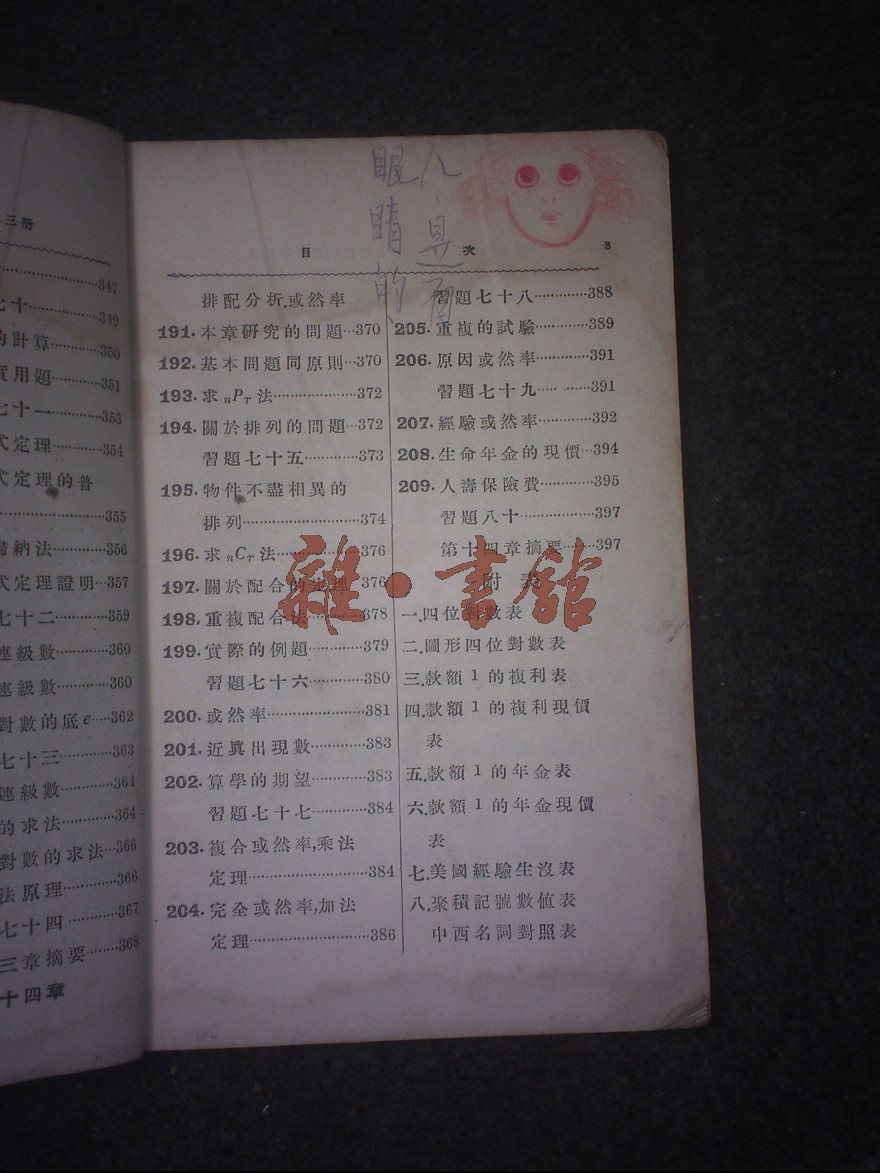 三册
347
七十············349
的計算············350
實用題············351
七十一············353
式定理············354
式定理的普
············355
歸納法············356
式定理證明···357
七十二············359
連級數············360
連級數············360
對數的底e·····362
七十三············363
連級數············364
的求法············364
對數的求法···366
法原理············366
七十四············367
三章摘要········368
十四章
人
眼睛的
目 次 3
排配分析.或然率
191.本章研究的問題···370
192.基本問題同原則···370
193.求nPr法···············372
194.關於排列的問題···372
習題七十五············373
195.物件不盡相異的
排列·····················374
196.求nCr法···············376
197.關於配合的定理 376
198.重複配合法············378
199.實際的例題············379
習題七十六············380
200.或然率·····················381
201.近眞出現數············383
202.算學的期望············383
習題七十七············384
203.複合或然率,乘法
定理·····················384
204.完全或然率,加法
定理·····················386
習題七十八············388
205.重複的試驗············389
206.原因或然率············391
習題七十九············391
207.經驗或然率············392
208.生命年金的現價···394
209.人壽保險費············395
習題八十············397
第十四章摘要········397
附表
一.四位對數表
二.圖形四位對數表
三.款額1的複利表
四.款額1的複利現價
表
五.款額1的年金表
六.款額1的年金現價
表
七.美國經驗生沒表
八.聚積記號數值表
中西名詞對照表
雜·書館